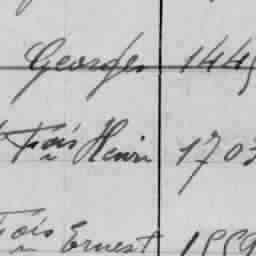 Georges 1445
Fçois Henri 1703
Fçois Ernest 1559